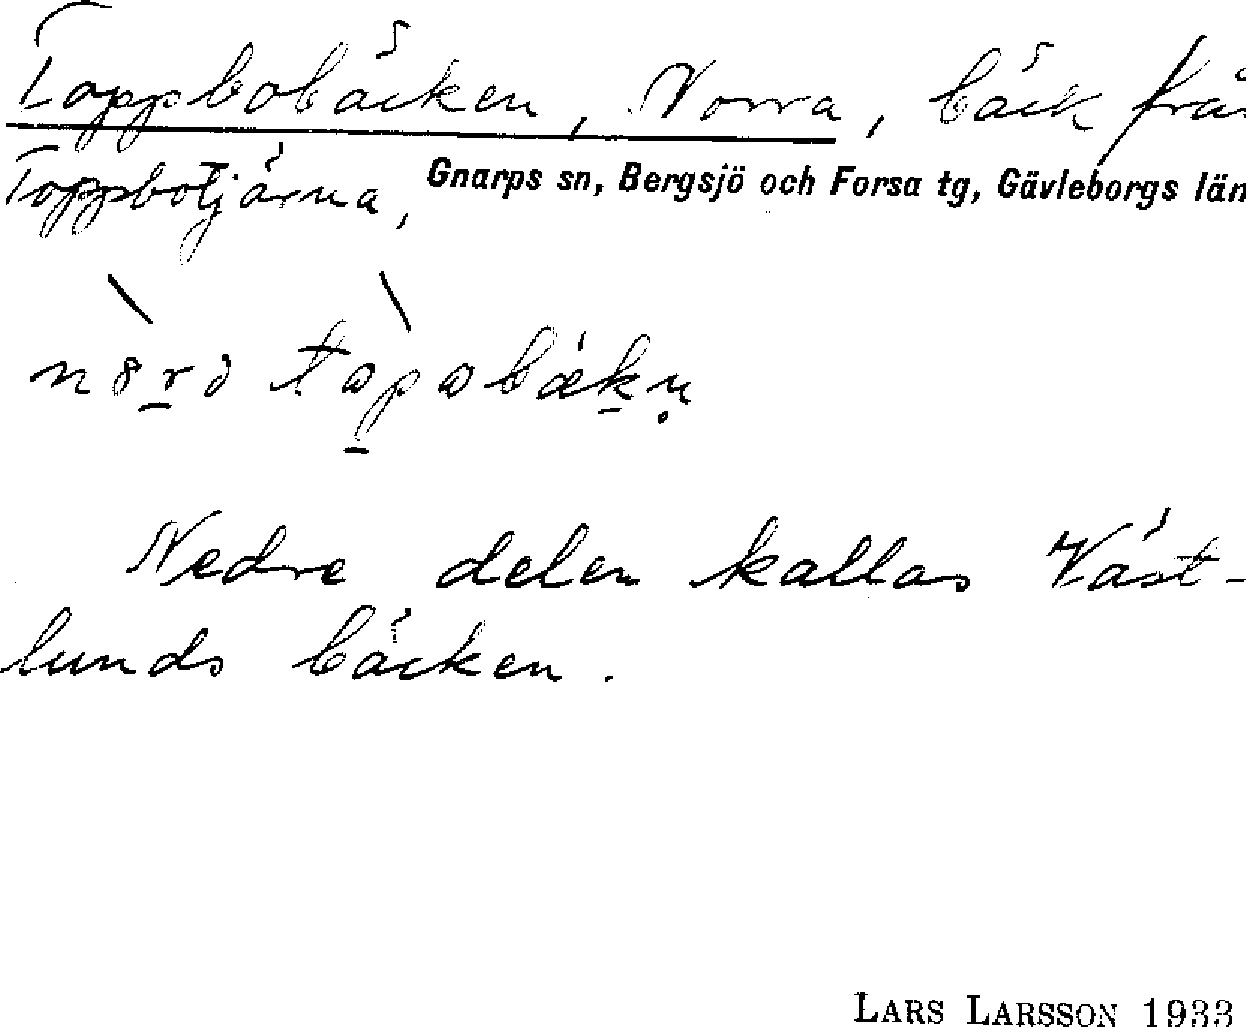 Toppbobäcken, Norra, bäck frå
Toppbotjärna, Gnarps sn, Bergsjö och Forsa tg, Gävleborgs län
Nedre delen kallas Väst-
lunds bäcken.
LARS LARSSON 1933